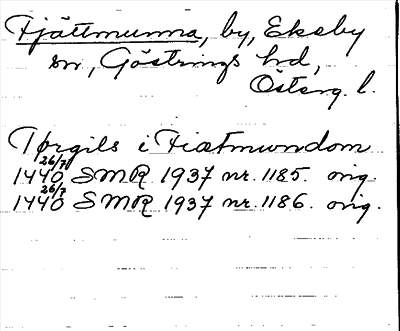 Fjättmunna, by, Ekeby
sn, Göstrings hd,
Österg. l.
Torgils i Fiætmundom
1440 26/7 SMR 1937 nr. 1185. orig.
1440 26/7 SMR 1937 nr. 1186. orig.